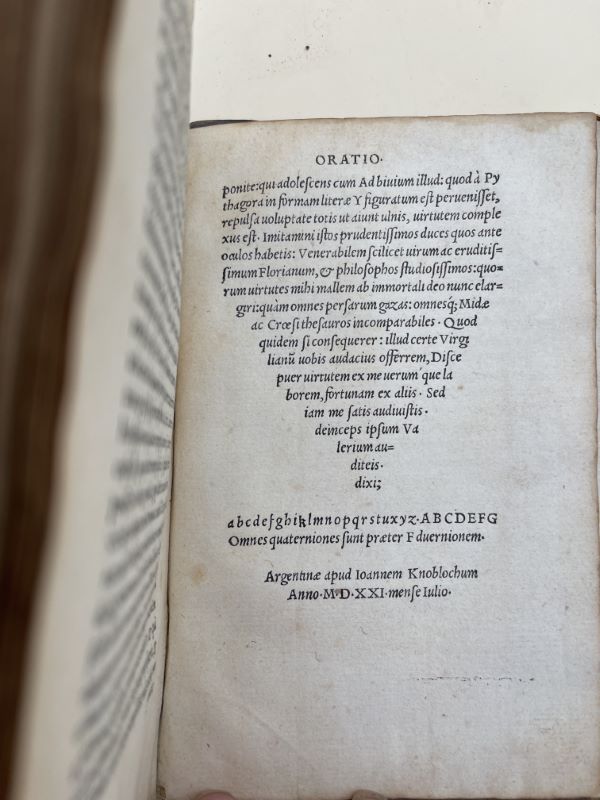 ORATIO·
ponite: qui adolescens cum Ad biuium illud: quod à Py
thagora in formam literæ Y figuratum est peruenisset,
repulsa uoluptate totis ut aiunt ulnis, uirtutem comple
xus est· Imitamini istos prudentissimos duces quos ante
oculos habetis: Venerabilem scilicet uirum ac eruditis=
simum Florianum, & philosophos studiosissimos: quo=
rum uirtutes mihi mallem ab immortali deo nunc elar=
giri: quàm omnes persarum gazas: omnesq; Midæ
ac Crœsi thesauros incomparabiles· Quod
quidem si consequerer: illud certe Virgi
lianũ uobis audacius offerrem, Disce
puer uirtutem ex me uerum´que la
borem, fortunam ex aliis· Sed
iam me satis audiuistis·
deinceps ipsum Va
lerium au=
diteis·
dixi;
a b c d e f g h i k l m n o p q r s t u x y z· A B C D E F G
Omnes quaterniones sunt præter F duernionem·
Argentinæ apud Ioannem Knoblochum
Anno·M·D·XXI·mense Iulio·